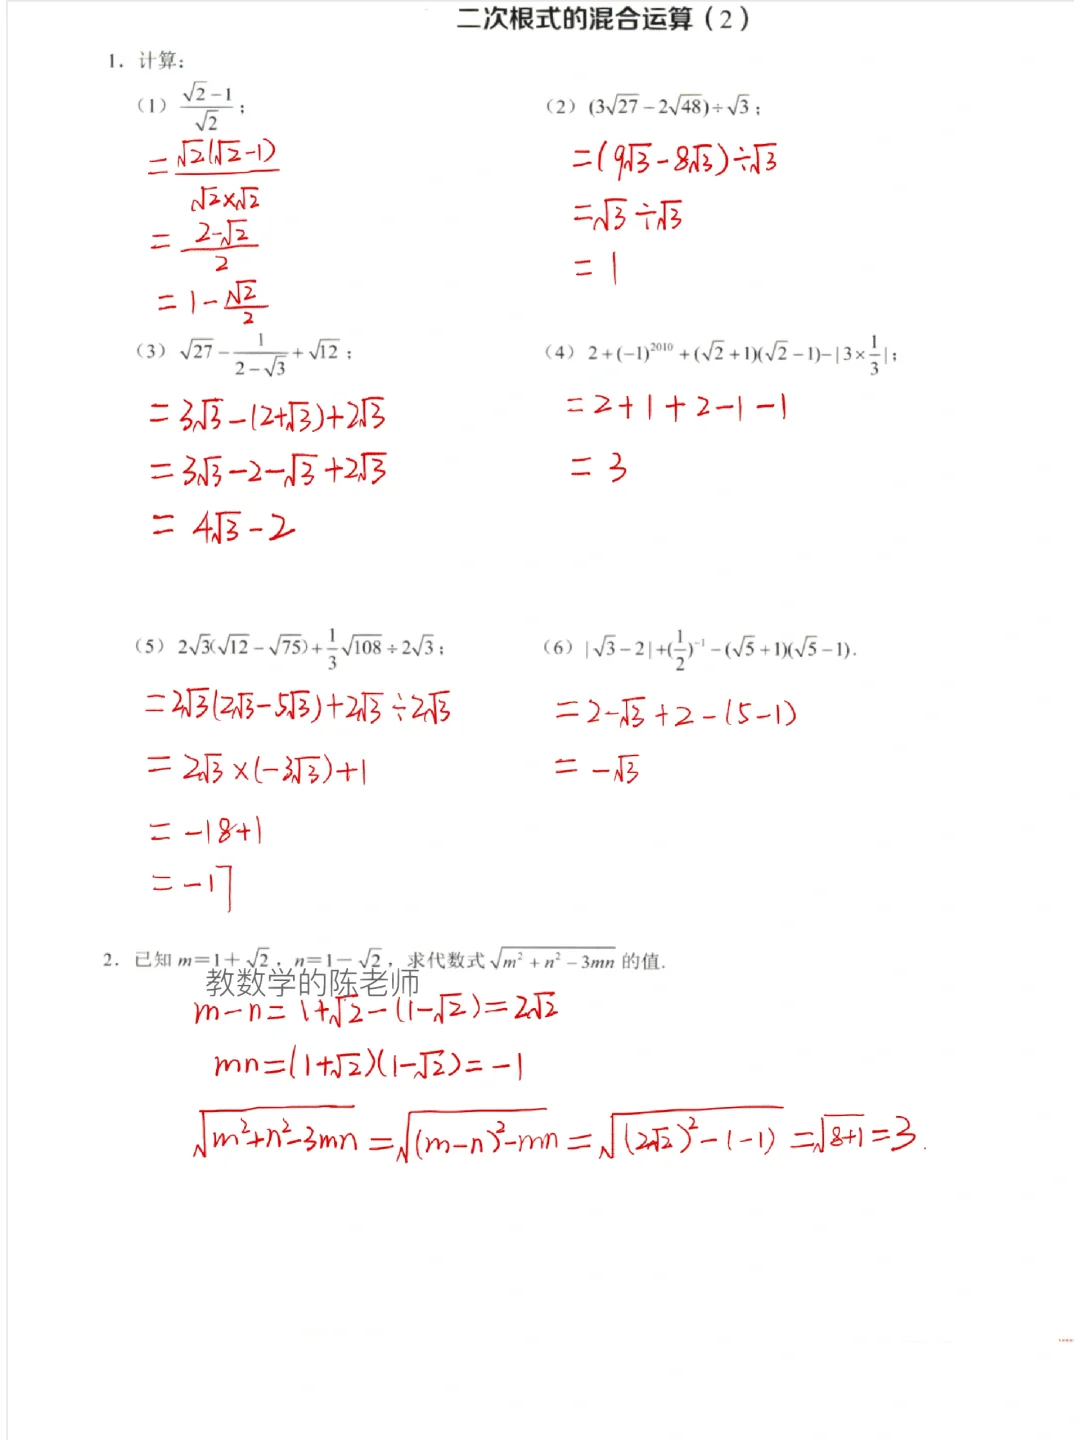 二次根式的混合运算（2）
1. 计算:
（1）(√2-1)/√2；
=√2(√2-1)/(√2×√2)
=(2-√2)/2
=1-√2/2
（2）(3√27-2√48)÷√3；
=(9√3-8√3)÷√3
=√3÷√3
=1
（3）√27-1/(2-√3)+√12；
=3√3-(2+√3)+2√3
=3√3-2-√3+2√3
=4√3-2
（4）2+(-1)²⁰¹⁰+(√2+1)(√2-1)-|3×1/3|；
=2+1+2-1-1
=3
（5）2√3(√12-√75)+1/3√108÷2√3；
=2√3(2√3-5√3)+2√3÷2√3
=2√3×(-3√3)+1
=-18+1
=-17
（6）|√3-2|+(1/2)⁻¹-(√5+1)(√5-1).
=2-√3+2-(5-1)
=-√3
2. 已知m=1+√2，n=1-√2，求代数式√(m²+n²-3mn)的值.
教数学的陈老师
m-n=1+√2-(1-√2)=2√2
mn=(1+√2)(1-√2)=-1
√(m²+n²-3mn)=√((m-n)²-mn)=√((2√2)²-(-1))=√(8+1)=3.